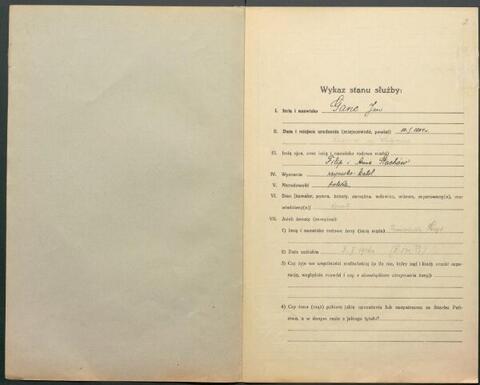 2
Wykaz stanu służby:
I. Imię i nazwisko Ganc Jan
II. Data i miejsce urodzenia (miejscowość, powiat)
III. Imię ojca, oraz imię i nazwisko rodowe matki)
Filip i Anna Stachów
IV. Wyznanie rzymsko-katol
V. Narodowość polska
VI. Stan (kawaler, panna, żonaty, zamężna, wdowiec, wdowa, separowany(a), roz-
wiedziony(a))
VII. Jeżeli żonaty (zamężna):
1) Imię i nazwisko rodowe żony (imię męża)
2) Data zaślubin
3) Czy żyje we wspólności małżeńskiej (o ile nie, czy sąd i kiedy orzekł sepa-
rację, względnie rozwód i czy z obowiązkiem utrzymania żony)
4) Czy żona (mąż) pobiera jakie uposażenie lub zaopatrzenie ze Skarbu Pań-
stwa, a w danym razie z jakiego tytułu?